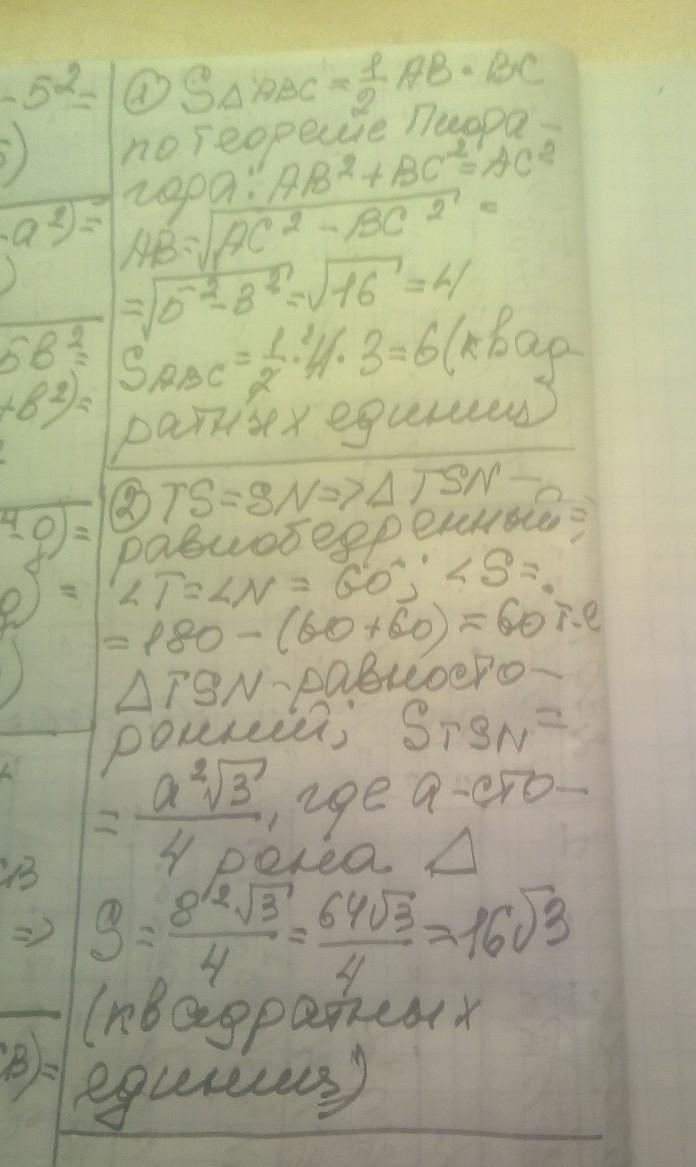 - 5² =
5)
① S△ABC = 1/2 AB · BC
по теореме Пифа-
гора: AB² + BC² = AC²
- a²) =
)
AB = √(AC² - BC²) =
= √(5² - 3²) = √16 = 4
5b² =
+b²) =
S ABC = 1/2 · 4 · 3 = 6 (квад-
ратных единиц)
② TS = SN => △TSN -
равнобедренный =>
∠T = ∠N = 60°; ∠S =
= 180 - (60+60) = 60 т.е
△TSN - равносто-
ронний; S TSN =
= a²√3/4, где a - сто-
рона △
CB
=>
S = 8²√3/4 = 64√3/4 = 16√3
(квадратных
CB) =
единиц)